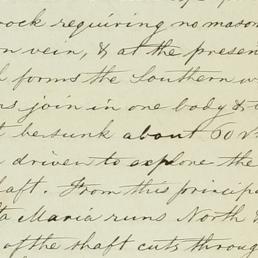 rock requiring no mason
n vein, & at the presen
forms the Southern w
ns join in one body &
be sunk about 60 V
driven to explore the
haft. From this principa
ta Maria runs North
of the shaft cuts through